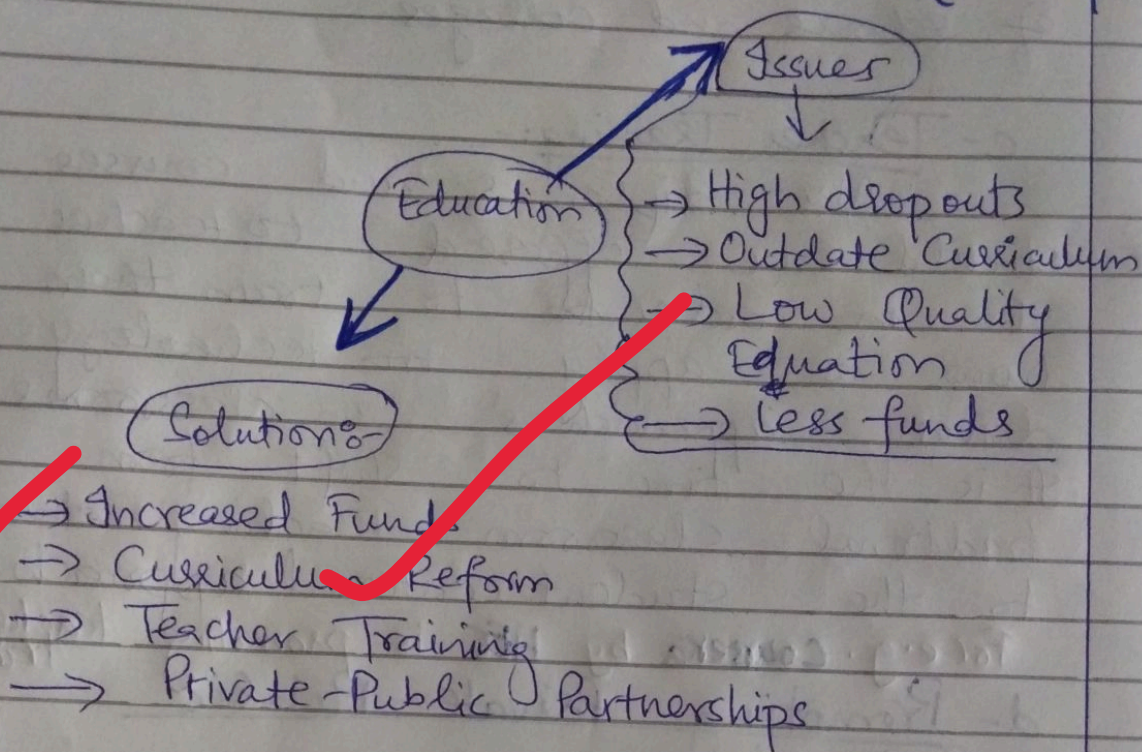 Issues
Education
→ High dropouts
→ Outdate Curriculum
→ Low Quality
Eduation
→ less funds
Solution:-
→ Increased Funds
→ Curriculum Reform
→ Teacher Training
→ Private-Public Partnerships